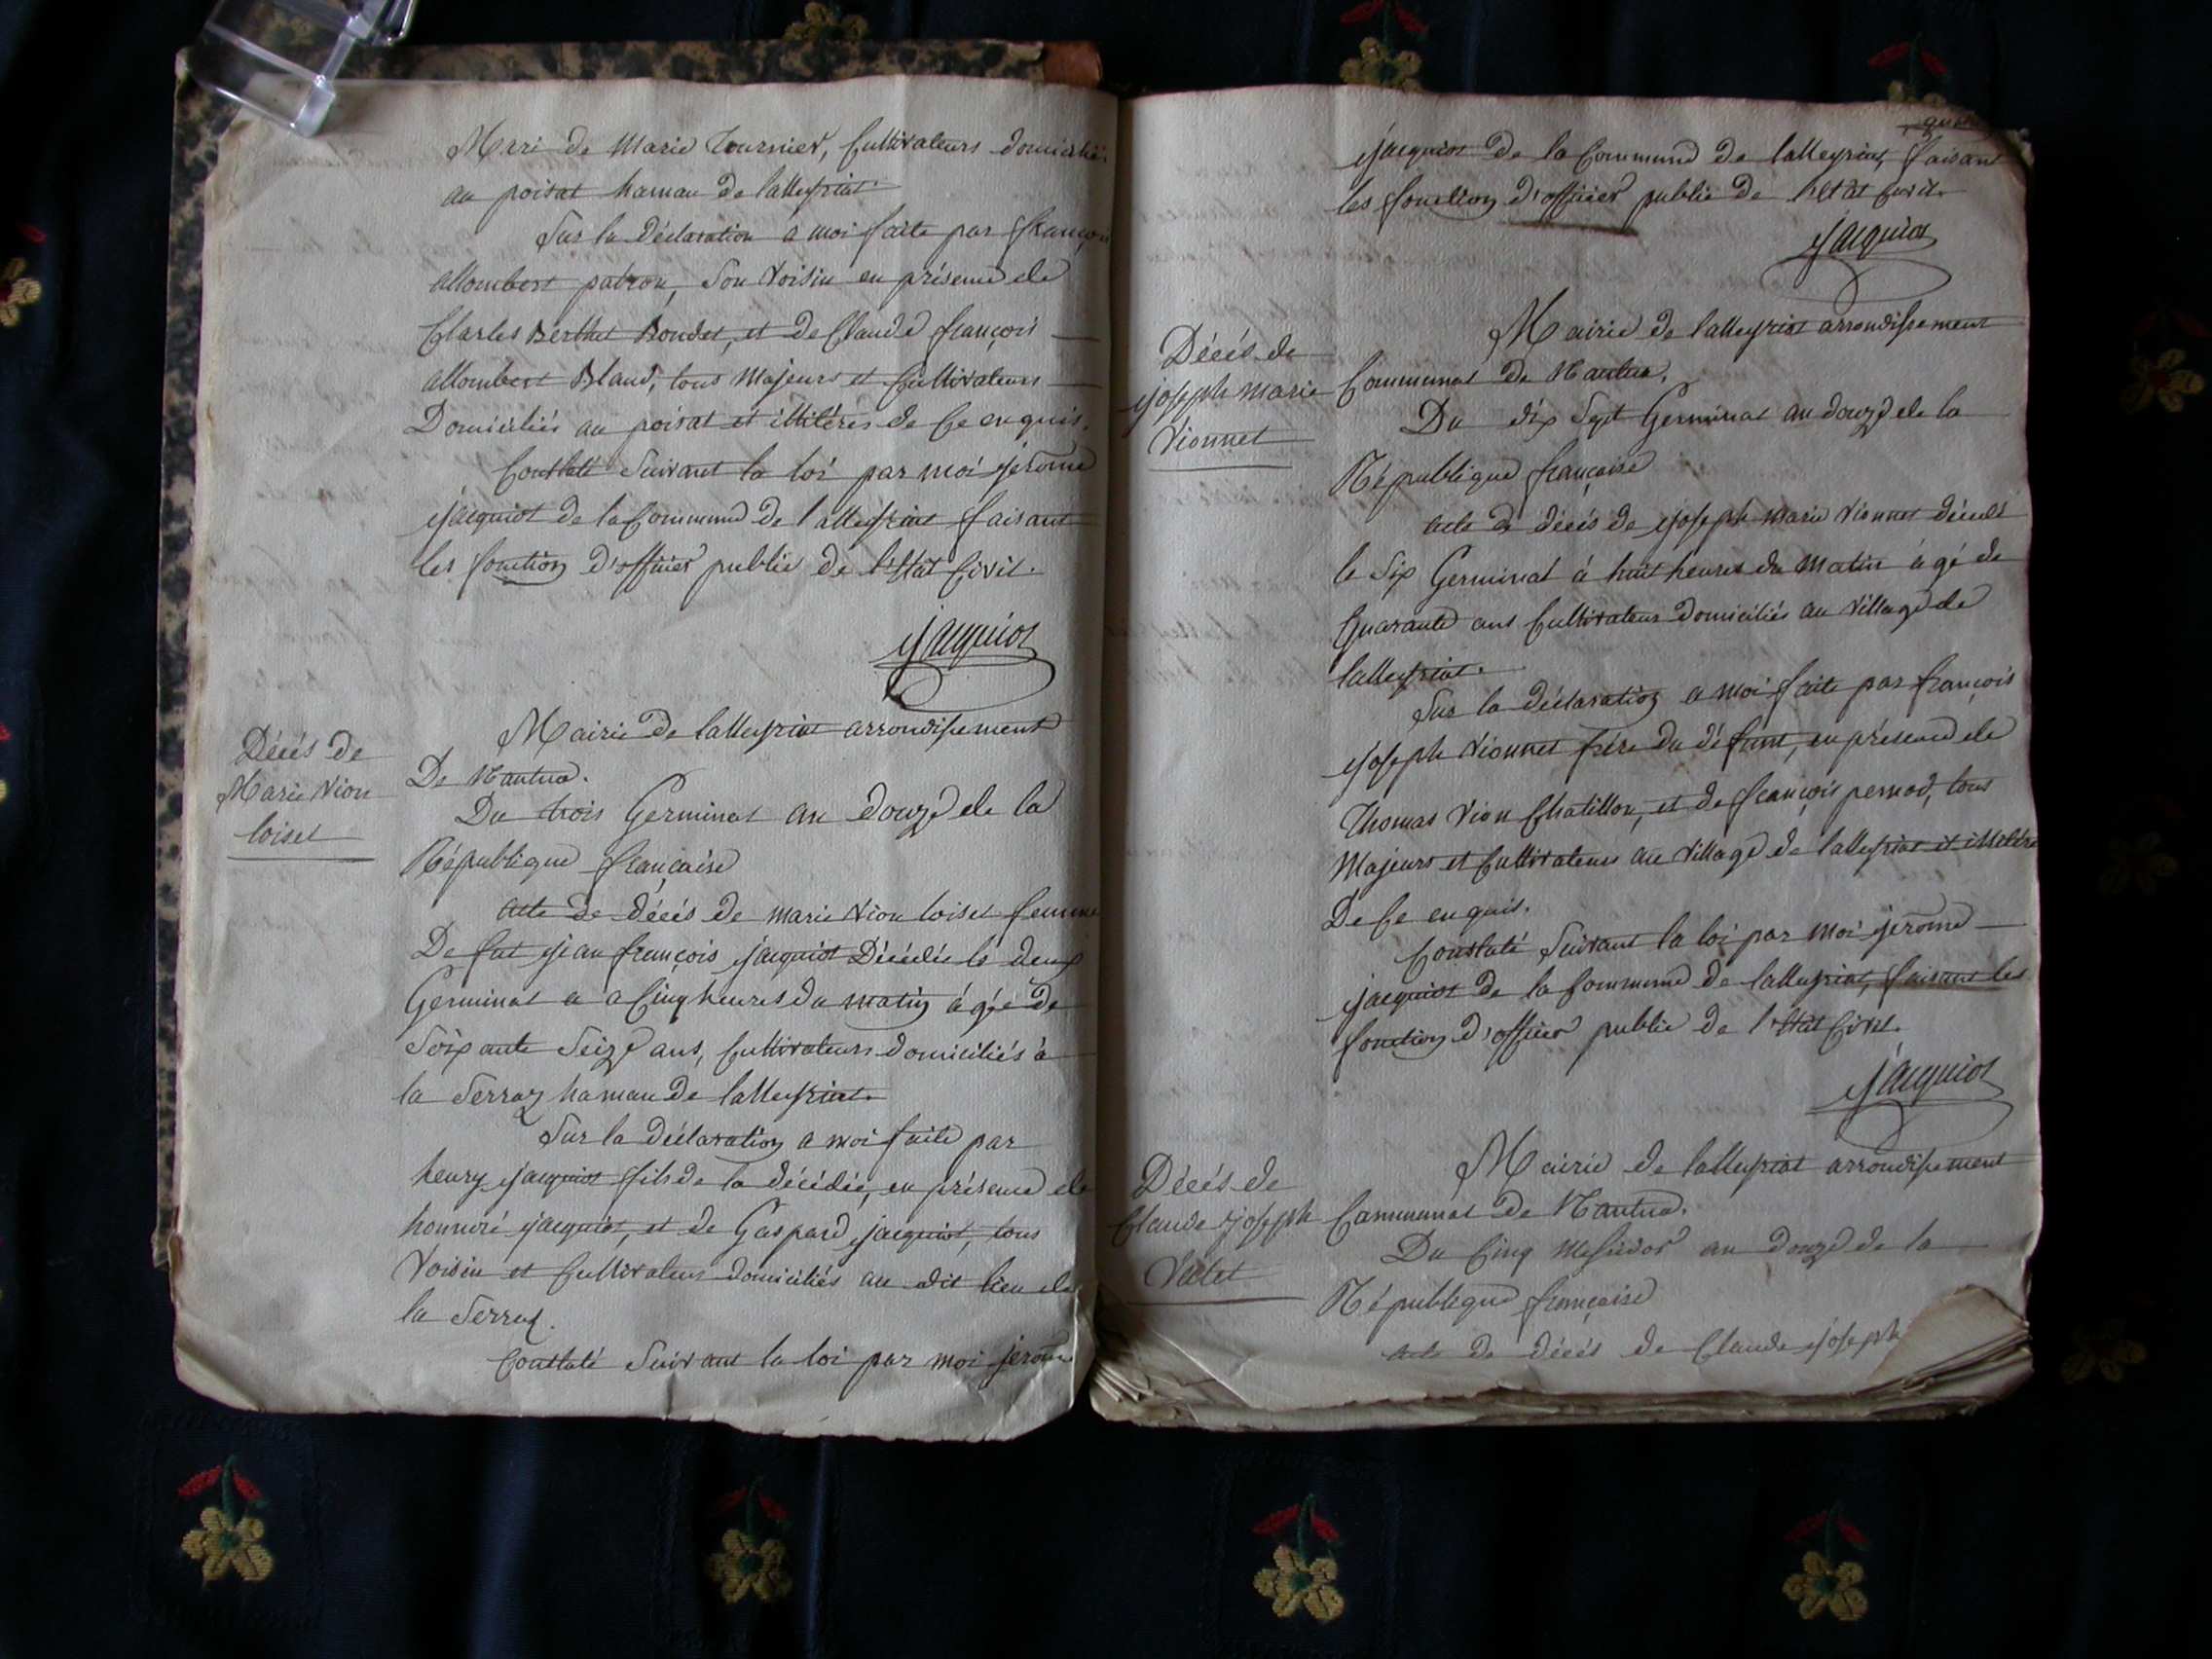 Marri de Marie Tournier, Cultivateurs domiciliés
au poisat hamau de lalleyriat.
Sur la déclaration a moi faite par françois
allombert patron, son voisin en présence de
Charles Berthet Bondet, et de Claude françois
allombert Bland, tous Majeurs et Cultivateurs
Domiciliés au poisat et illitéres de Ce enquis.
Constaté Suivant la loi par moi jérome
jacquiot de la Commune de lalleyriat faisant
les fonction d'officier public de l'Etat Civil.
jacquiot
Mairie de lalleyriat arrondissement
De Nantua.
Décés de
Marie Vion
loiset
Du trois Germinal an douze de la
République française
acte de décés de marie Vion loiset femme
De fut jean françois jacquiot Décédée le deux
Germinal a Cinq heures du matin âgée de
Soixante Seize ans, Cultivateurs domiciliés à
la Serraz hamau de lalleyriat.
Sur la déclaration a moi faite par
henry jacquiot fils de la décédée, en présence de
honnoré jacquiot, et de Gaspard jacquiot, tous
Voisin et Cultivateurs domiciliés au dit lieu de
la Serraz.
Constaté Suivant la loi par moi jerome
jacquiot de la Commune de lalleyriat, faisant
les fonction d'officier public de l'Etat Civil.
jacquiot
Mairie de lalleyriat arrondissement
Communal de Nantua.
Décés de
joseph marie
Vionnet
Du dix Sept Germinal an douze de la
République française
acte de décés de joseph marie Vionnet décedé
le Six Germinal à huit heures du Matin âgé de
Quarante ans Cultivateurs domiciliés au Village de
lalleyriat.
Sur la déclaration a moi faite par françois
joseph Vionnet frére du défunt, en présence de
Thomas Vion Chatillon, et de françois pernod, tous
Majeurs et Cultivateurs au Village de lalleyriat et illitéré
De Ce enquis.
Constaté Suivant la loi par moi jerome
jacquiot de la Commune de lalleyriat, faisant les
fonction d'officier public de l'Etat Civil.
jacquiot
Mairie de lalleyriat arrondissement
Communal de Nantua.
Décés de
Claude joseph
Vallet
Du Cinq Messidor an douze de la
République française
acte de décés de Claude joseph